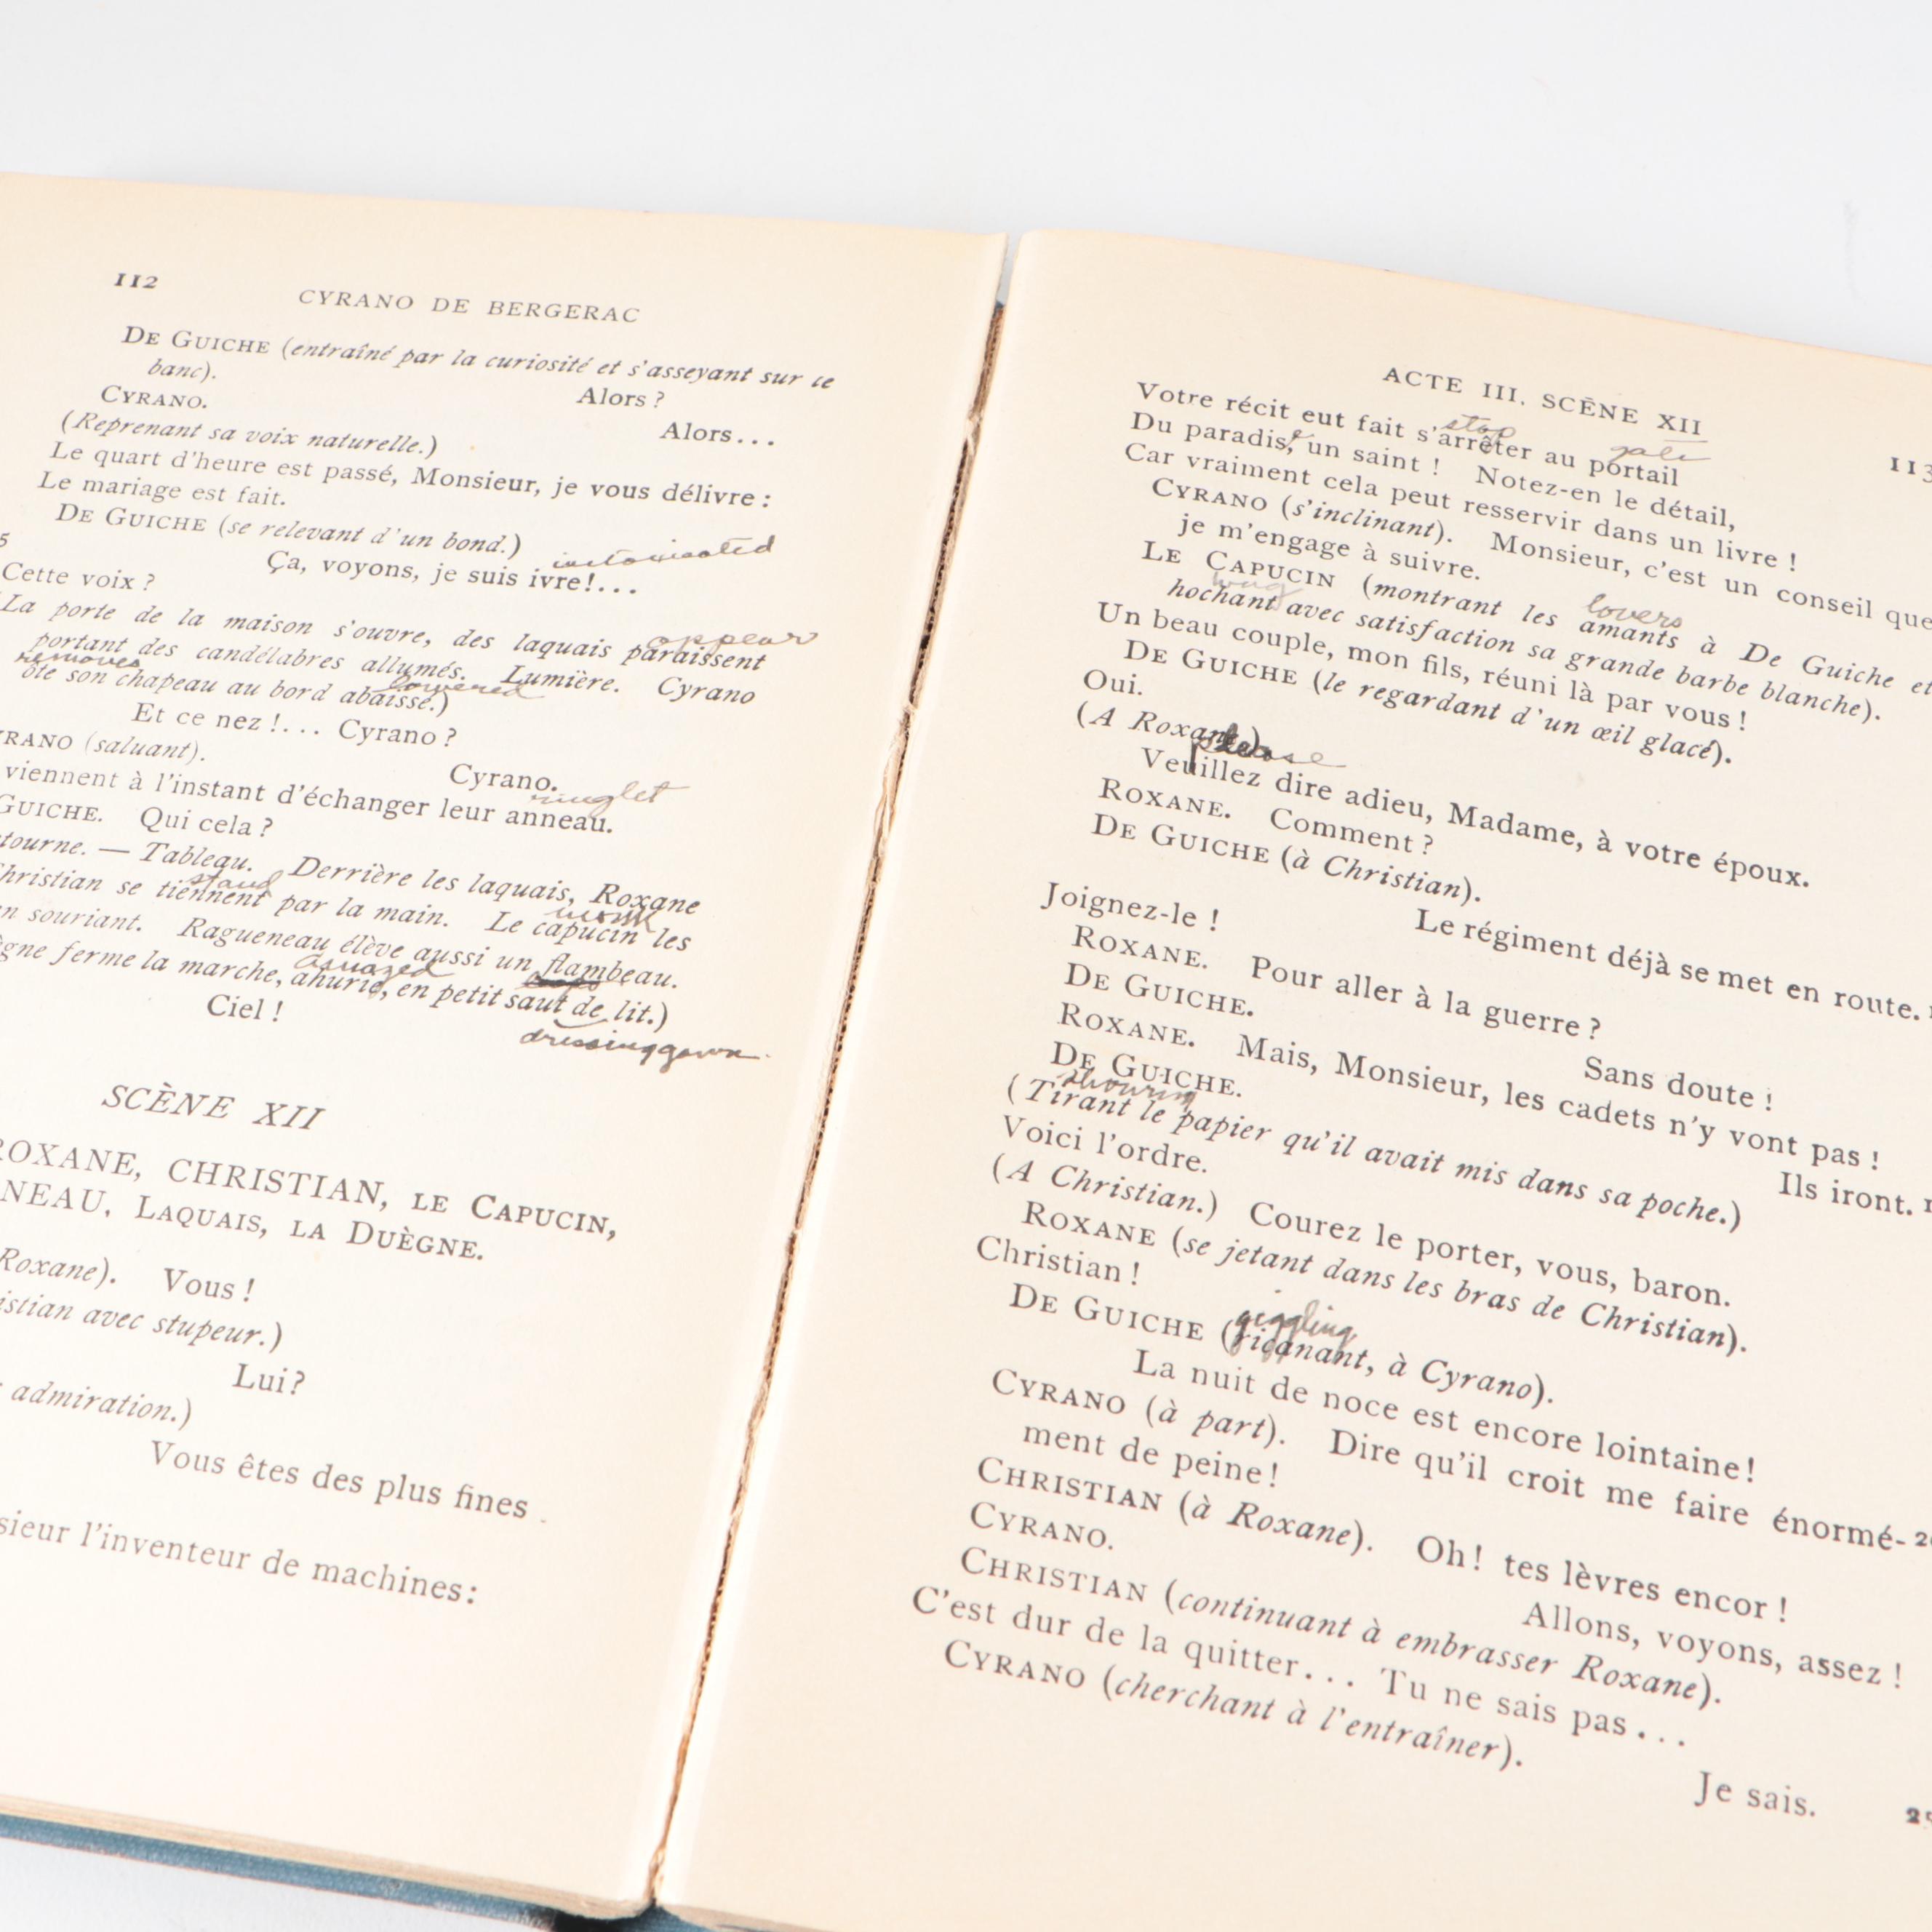 112
CYRANO DE BERGERAC
DE GUICHE (entraîné par la curiosité et s'asseyant sur le
banc).
Alors ?
CYRANO.
Alors...
(Reprenant sa voix naturelle.)
Le quart d'heure est passé, Monsieur, je vous délivre :
Le mariage est fait.
DE GUICHE (se relevant d'un bond.)
intoxicated
5
Ça, voyons, je suis ivre!...
Cette voix ?
appear
(La porte de la maison s'ouvre, des laquais paraissent
portant des candélabres allumés. Lumière. Cyrano
removes lowered
ôte son chapeau au bord abaissé.)
Et ce nez !... Cyrano ?
RANO (saluant).
Cyrano.
ringlet
viennent à l'instant d'échanger leur anneau.
GUICHE. Qui cela ?
tourne. — Tableau. Derrière les laquais, Roxane
stand
hristian se tiennent par la main. Le capucin les
monk
en souriant. Ragueneau élève aussi un flambeau.
amazed
ègne ferme la marche, ahurie, en petit saut de lit.)
dressing gown
Ciel !
SCÈNE XII
ROXANE, CHRISTIAN, LE CAPUCIN,
NEAU, LAQUAIS, LA DUÈGNE.
Roxane). Vous !
istian avec stupeur.)
Lui?
admiration.)
Vous êtes des plus fines
sieur l'inventeur de machines:
ACTE III. SCÈNE XII
113
Votre récit eut fait s'arrêter au portail
stop gate
Du paradis, un saint ! Notez-en le détail,
Car vraiment cela peut resservir dans un livre !
CYRANO (s'inclinant). Monsieur, c'est un conseil que
je m'engage à suivre.
lovers
LE CAPUCIN (montrant les amants à De Guiche et
wag
hochant avec satisfaction sa grande barbe blanche).
Un beau couple, mon fils, réuni là par vous !
DE GUICHE (le regardant d'un œil glacé).
Oui.
(A Roxane.)
please
Veuillez dire adieu, Madame, à votre époux.
ROXANE. Comment ?
DE GUICHE (à Christian).
Le régiment déjà se met en route.
Joignez-le !
ROXANE. Pour aller à la guerre ?
DE GUICHE.
Sans doute !
ROXANE. Mais, Monsieur, les cadets n'y vont pas !
DE GUICHE.
Ils iront.
(Tirant le papier qu'il avait mis dans sa poche.)
Voici l'ordre.
(A Christian.) Courez le porter, vous, baron.
ROXANE (se jetant dans les bras de Christian).
Christian !
giggling
DE GUICHE (ricanant, à Cyrano).
La nuit de noce est encore lointaine!
CYRANO (à part). Dire qu'il croit me faire énormé-
ment de peine!
CHRISTIAN (à Roxane). Oh! tes lèvres encor !
CYRANO.
Allons, voyons, assez !
CHRISTIAN (continuant à embrasser Roxane).
C'est dur de la quitter... Tu ne sais pas...
CYRANO (cherchant à l'entraîner).
Je sais.